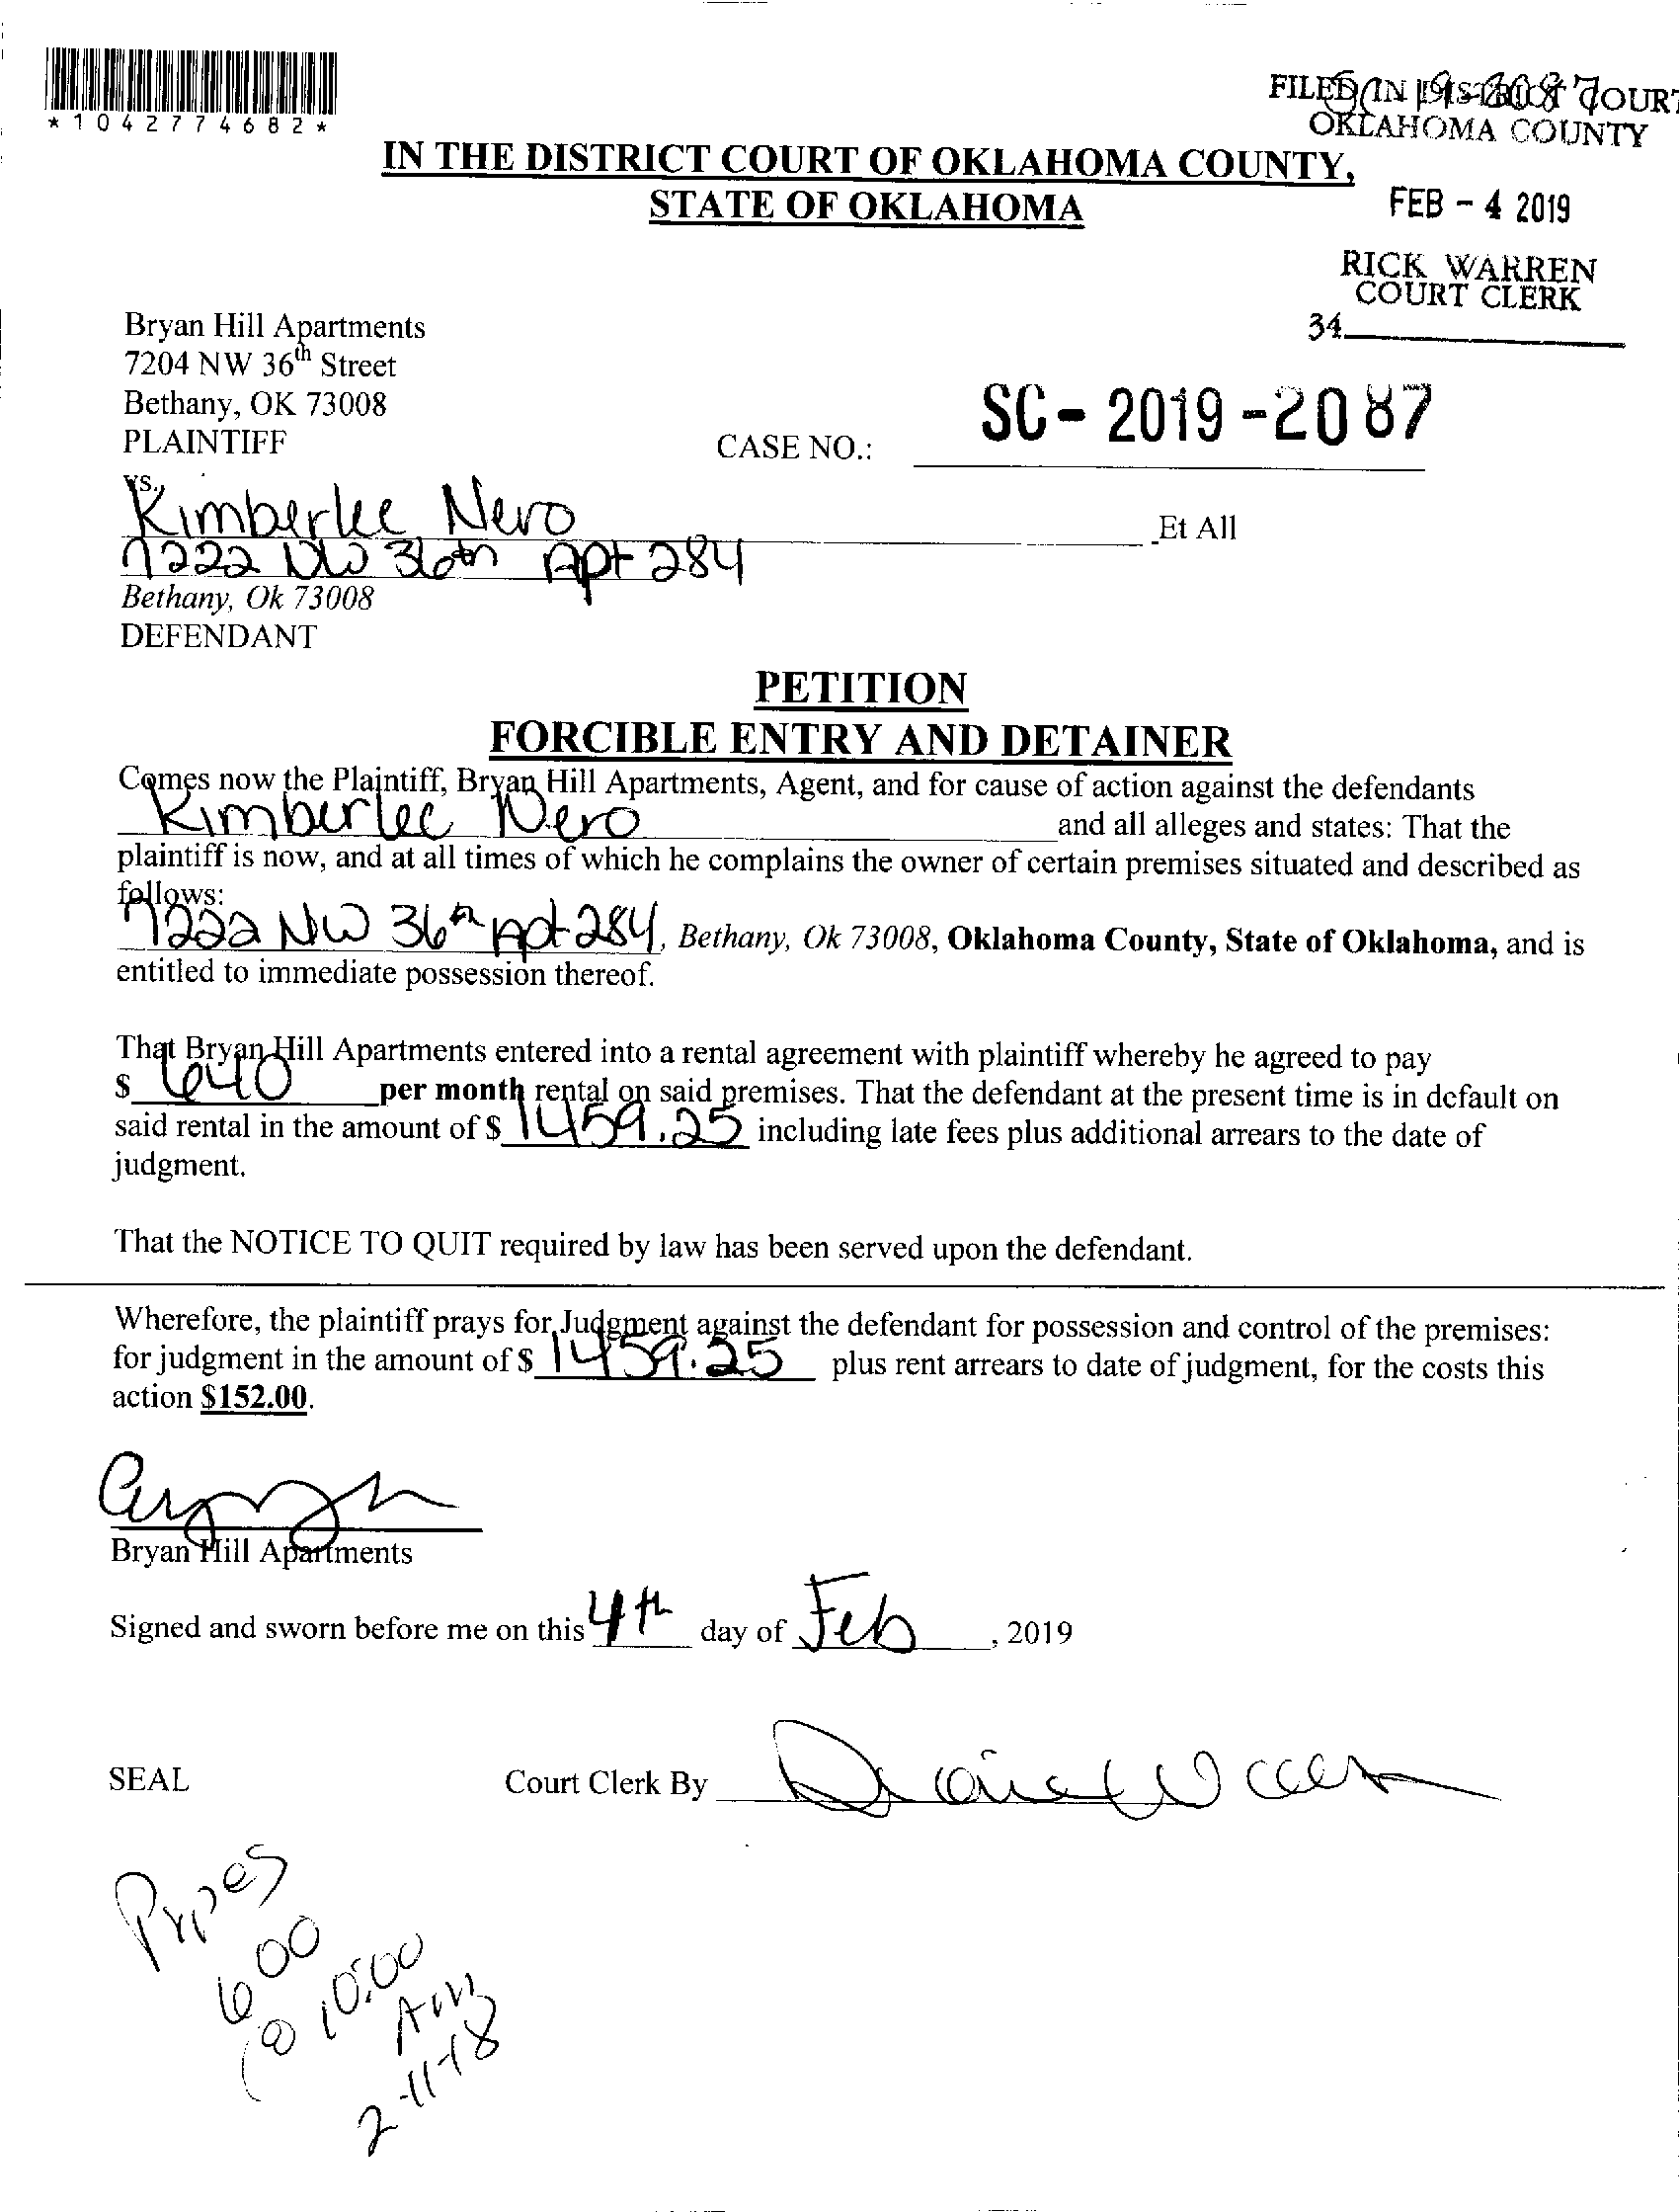 *1042774682*
FILED IN DISTRICT COURT
OKLAHOMA COUNTY
IN THE DISTRICT COURT OF OKLAHOMA COUNTY,
STATE OF OKLAHOMA
FEB - 4 2019
RICK WARREN
COURT CLERK
34
Bryan Hill Apartments
7204 NW 36th Street
Bethany, OK 73008
PLAINTIFF
CASE NO.: SC - 2019 - 2087
vs.
Kimberlee Nero Et All
7222 NW 36th Apt 284
Bethany, Ok 73008
DEFENDANT
PETITION
FORCIBLE ENTRY AND DETAINER
Comes now the Plaintiff, Bryan Hill Apartments, Agent, and for cause of action against the defendants
Kimberlee Nero and all alleges and states: That the
plaintiff is now, and at all times of which he complains the owner of certain premises situated and described as
follows:
7222 NW 36th Apt 284, Bethany, Ok 73008, Oklahoma County, State of Oklahoma, and is
entitled to immediate possession thereof.
That Bryan Hill Apartments entered into a rental agreement with plaintiff whereby he agreed to pay
$ 640 per month rental on said premises. That the defendant at the present time is in default on
said rental in the amount of $ 1459.25 including late fees plus additional arrears to the date of
judgment.
That the NOTICE TO QUIT required by law has been served upon the defendant.
Wherefore, the plaintiff prays for Judgment against the defendant for possession and control of the premises:
for judgment in the amount of $ 1459.25 plus rent arrears to date of judgment, for the costs this
action $152.00.
Bryan Hill Apartments
Signed and sworn before me on this 4th day of Feb, 2019
SEAL Court Clerk By
600
@ 10:00
Am
2-11-18